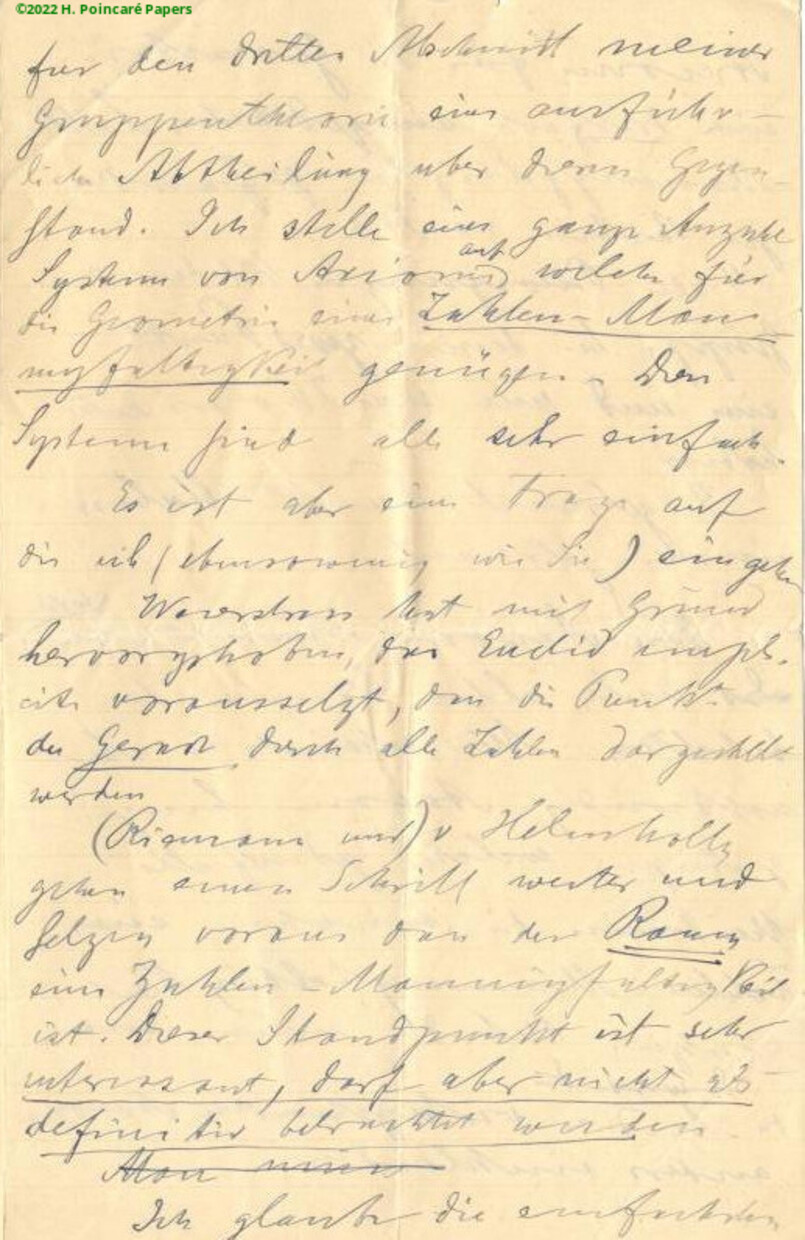 ©2022 H. Poincaré Papers
für den dritten Abschnitt meiner
Gruppentheorie eine ausführ-
liche Abtheilung über diesen Gegen-
stand. Ich stelle eine ganze Anzahl
Systeme von Axiomen auf, welche für
die Geometrie einer Zahlen-Man-
nigfaltigkeit genügen. Diese
Systeme sind alle sehr einfach.
Es ist aber eine Frage auf
die ich (ebensowenig wie Sie) eingehe
Weierstrass hat mit Grund
hervorgehoben, das Euclid impli-
cite voraussetzt, dass die Punkte
der Gerade durch alle Zahlen dargestellt
werden
(Riemann und) v Helmholtz
gehen einen Schritt weiter und
setzen voraus dass der Raum
eine Zahlen-Mannigfaltigkeit
ist. Dieser Standpunkt ist sehr
interessant, darf aber nicht als
definitiv betrachtet werden.
Man muss
Ich glaube die einfachsten